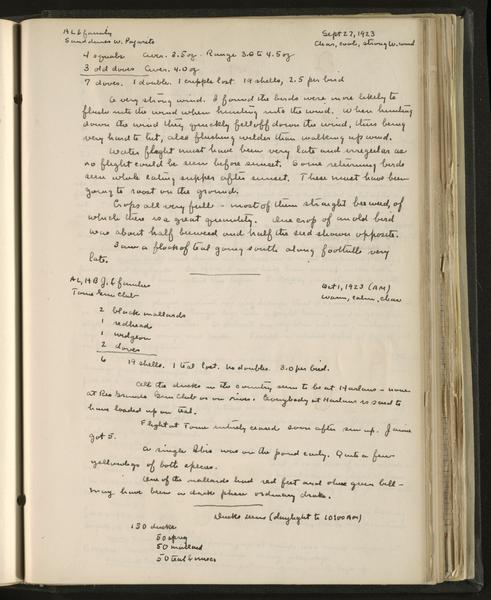 AL & family
Sept 27, 1923
Sand dunes W. Pajarito
Clear, cool, strong W. wind
4 squabs aver. 3.5 oz. Range 3.0 to 4.5 oz
3 old doves aver. 4.0 oz
7 doves. 1 double. 1 cripple lost. 19 shells, 2.5 per bird
A very strong wind. I found the birds were more likely to
flush into the wind when hunting into the wind. When hunting
down the wind they quickly fell off down the wind, thus being
very hard to hit, also flushing wilder than walking up wind.
Water flight must have been very late and irregular as
no flight could be seen before sunset. Some returning birds
seen while eating supper after sunset. These must have been
going to roost on the ground.
Crops all very full - most of them straight beeweed, of
which there is a great quantity. One crop of an old bird
was about half beeweed and half the seed shown opposite.
Saw a flock of teal going south along foothills very
late.
AL, HBJ, & families
Oct 1, 1923 (AM)
Tome Gun Club
Warm, calm, clear
2 black mallards
1 redhead
1 widgeon
2 doves
6 19 shells. 1 teal lost. No doubles. 3.0 per bird.
All the ducks in the country seem to be at Harlans - none
at Rio Grande Gun Club or on river. Everybody at Harlans is said to
have loaded up on teal.
Flight at Tome entirely ceased soon after sun up. Jamie
got 5.
A single Ibis was on the pond early. Quite a few
yellowlegs of both species.
One of the mallards had red feet and olive green bill -
may have been a dark phase ordinary drake.
Ducks seen (daylight to 10:00 AM)
150 ducks
50 sprig
50 mallard
50 teal & misc